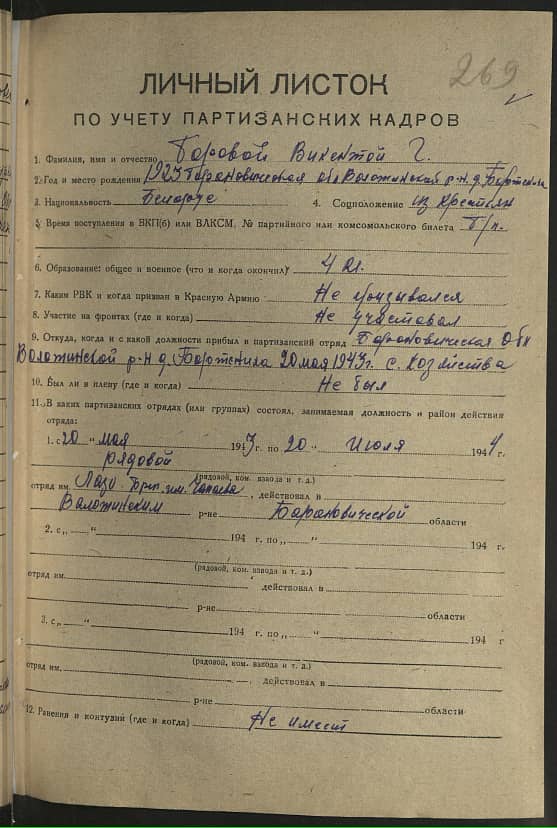 269
ЛИЧНЫЙ ЛИСТОК
ПО УЧЕТУ ПАРТИЗАНСКИХ КАДРОВ
1. Фамилия, имя и отчество Боровой Викентой Г.
2. Год и место рождения 1923 Барановическая обл Воложинский р-н д.
3. Национальность Белорус 4. Соцположение из крестьян
5. Время поступления в ВКП(б) или ВЛКСМ, № партийного или комсомольского билета Б/п.
6. Образование: общее и военное (что и когда окончил) 4 кл.
7. Каким РВК и когда призван в Красную Армию Не призывался
8. Участие на фронтах (где и когда) Не участвовал
9. Откуда, когда и с какой должности прибыл в партизанский отряд Барановическая Обл
Воложинской р-н д. 20 мая 1943 г. с. хозяйства
10. Был ли в плену (где и когда) Не был
11. В каких партизанских отрядах (или группах) состоял, занимаемая должность и район действия
отряда:
1. с „20" мая 1943 г. по „20" Июля 1944 г.
рядовой
(рядовой, ком. взвода и т. д.)
отряд им. Лазо Бриг. им. Чапаева, действовал в
Воложинским р-не Барановической области
2. с „ " 194 г. по „ " 194 г.
(рядовой, ком. взвода и т. д.)
отряд им. действовал в
р-не области
3. с „ " 194 г. по „ " 194 г
(рядовой, ком. взвода и т. д.)
отряд им. , действовал в
р-не области
12. Ранения и контузии (где и когда) Не имеет